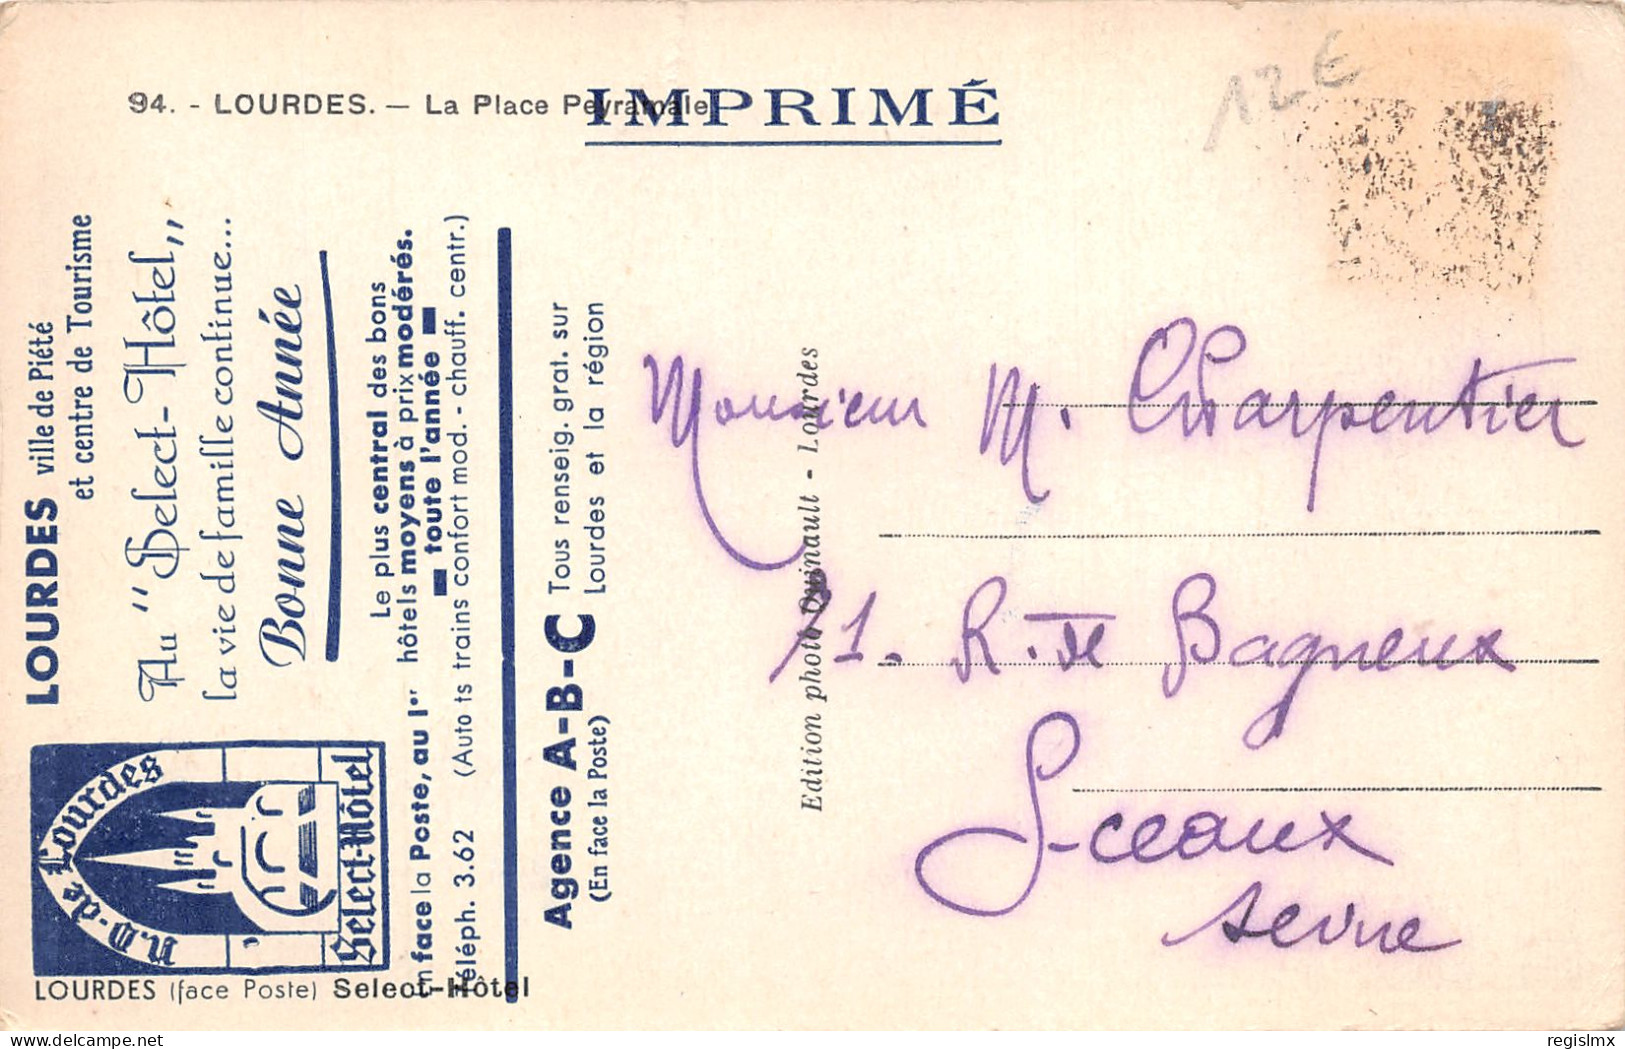 94. - LOURDES. — La Place Peyramale
IMPRIMÉ
12€
LOURDES ville de Piété
et centre de Tourisme
Au "Select-Hôtel„
la vie de famille continue...
Bonne Année
Le plus central des bons
hôtels moyens à prix modérés.
toute l'année
En face la Poste, au 1er
Téléph. 3.62 (Auto ts trains confort mod. - chauff. centr.)
Agence A-B-C
(En face la Poste)
Tous renseig. grat. sur
Lourdes et la région
N.D. de Lourdes
Select-Hôtel
LOURDES (face Poste) Select-Hôtel
Edition photo Quinault - Lourdes
Monsieur M. Charpentier
71. R. de Bagneux
Sceaux
Seine
delcampe.net
regislmx